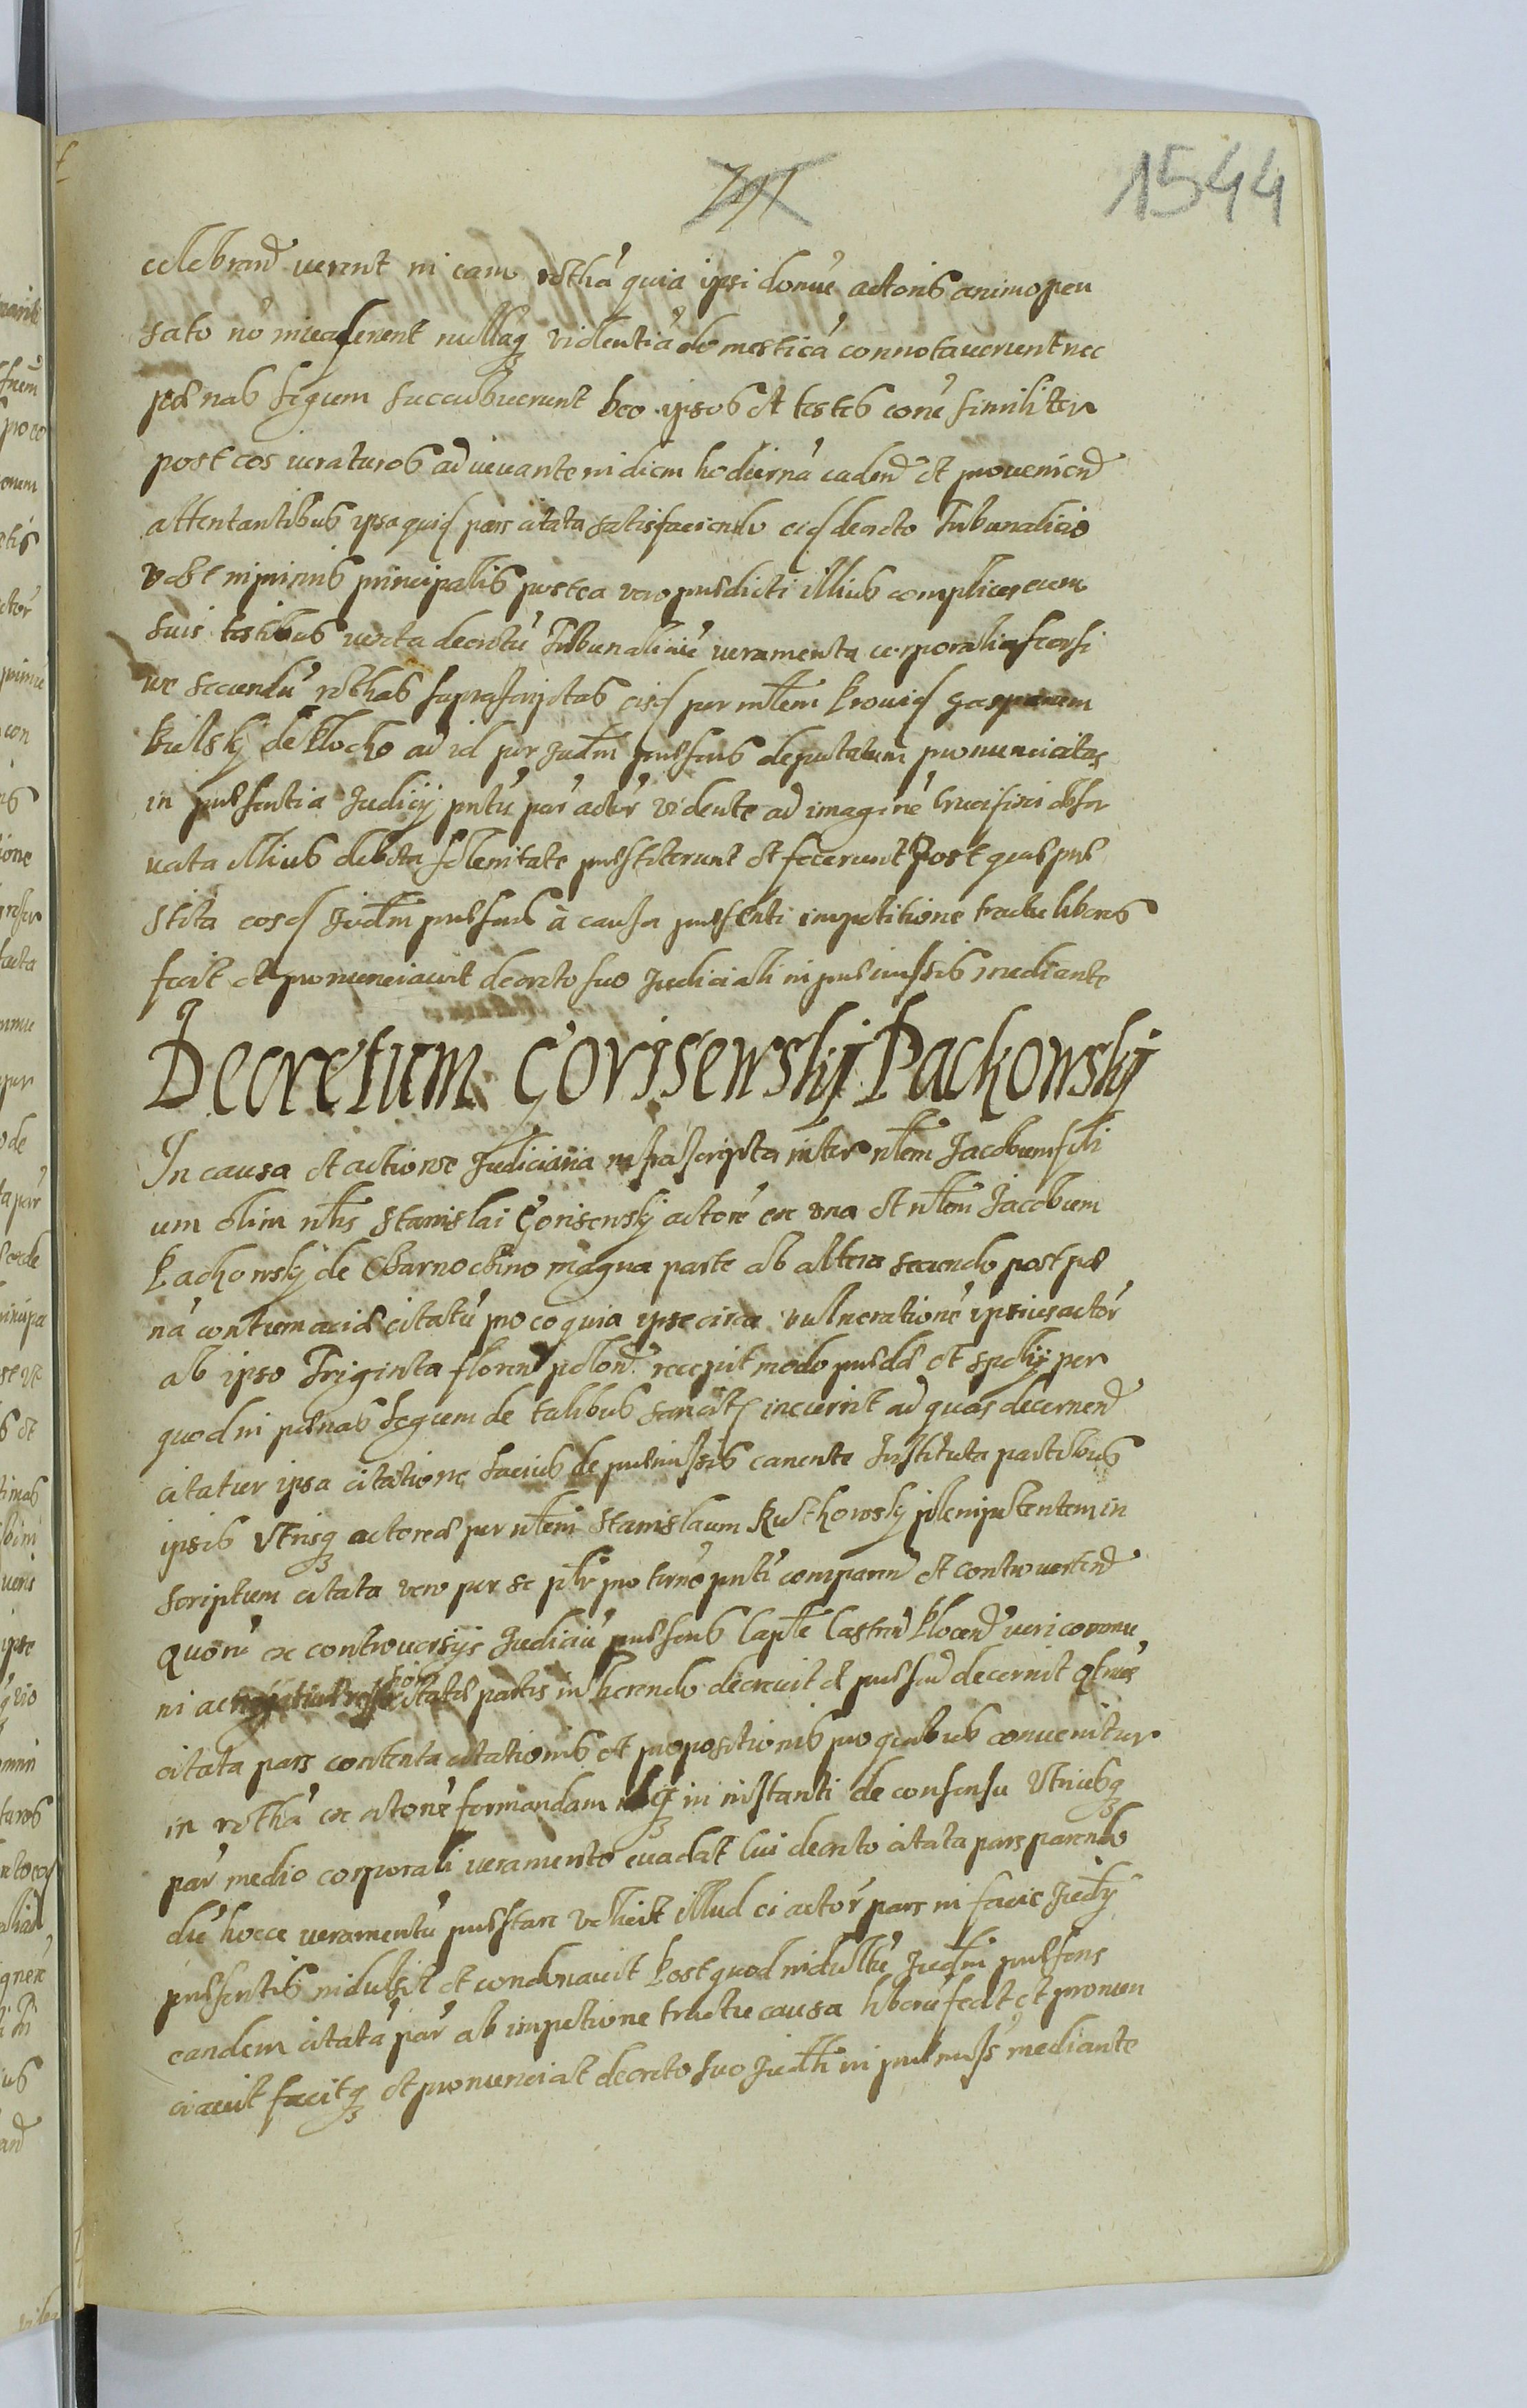 1544
celebrand̄ verent in eam rothā quia ipsi domū actoris animo pen
sato nō invaserent nullāq violentiā domesticā connotaverunt nec
pœnas legum succubuerunt hoc ipsos et testes coñe similiter
post eos iuraturos adiuvante in diem hodiernā cadeñ et provenieñ
attentantibus ipsa quid pars citata satisfaciendo eid decreto Tribunalicio
vt inprimis principalis postea vero prædicti illius complices cum
suis testibus iuxta decretū Tribunaliciū iuramenta corporalia seorsi
ve secundū rothas suprascriptas eisd per nłem Provid Gasparem
Bielskÿ de Płocko ad id per Judm præsens deputatum pronunciatas
in præsentia Judicÿ pntū par actor vidente ad imaginē Crucifixi obser
vata illius debita solenitate præstiterunt et fecerunt Post quæ præ
stita eosd Judm præsens à causa præsenti impetitione tractu liberos
fecit et pronunciavit decreto suo Judiciali in præmissis mediante
Decretum Gorisewskÿ Packowskÿ
In causa et actione Judiciaria infrascripta inter nłem Jacobum fili
um olim nłis Stanislai Gorisewskÿ actorē ex vna et nłem Jacobum
Packowskÿ de Czarnoczino magna parte ab altera secundo post pæ
nā contumaciæ citatū pro eo quia ipse circa vulnerationē ipsius actor
ab ipso Triginta floreñ poloñ recepit modo prædæ et spolÿ per
quod in pœnas legum de talibus sancit incurrit ad quas decerneñ
citatur ipsa citatione latius de præmissis canente Instituta partibus
ipsis vtrisq actorea per nłem Stanislaum Rutkowskÿ plenipotentem in
scriptum citata vero per se płr pro terno pnti comparen et controverteñ
Quorū ex controversÿs Judiciū præsens Capłe Castren Plocen iuri commu
ni ac citatæ partis inhærendo decrevit et præsen decernit Qtnus
citata pars contenta citationis et propositionis pro quibus convenitur
in rothā ex actone formandam in instanti de consensu vtriusq
par medio corporali iuramento evadat Cui decreto citata pars parendo
dū hocce iuramentū præstare veluit illud ei actor pars in facie Judÿ
præsentis indulsit et condonavit Post quod indultū Judm præsens
eandem citatā par ab impetitione tractu causa liberū fecit et pronun
ciavit facitq et pronunciat decreto suo Judłi in præmiss mediante